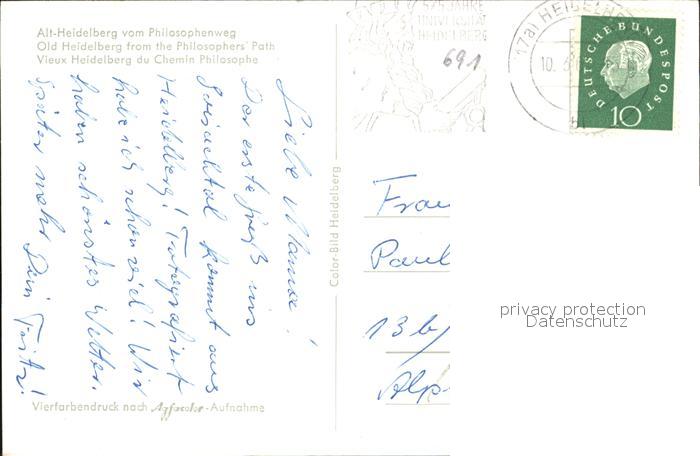 Alt-Heidelberg vom Philosophenweg
Old Heidelberg from the Philosophers' Path
Vieux Heidelberg du Chemin Philosophe
Liebe Mama!
Der erste Gruß ins
kommt aus
Heidelberg! Fotografiert
habe ich schon viel! Wir
haben schönstes Wetter.
Später mehr Dein Fritz!
Vierfarbendruck nach Agfacolor-Aufnahme
Color-Bild Heidelberg
575 JAHRE
UNIVERSITÄT
HEIDELBERG
691
(17a) HEIDELBE
10.
bf
DEUTSCHE BUNDESPOST
10
Frau
Paul
13b/
Alp
privacy protection
Datenschutz